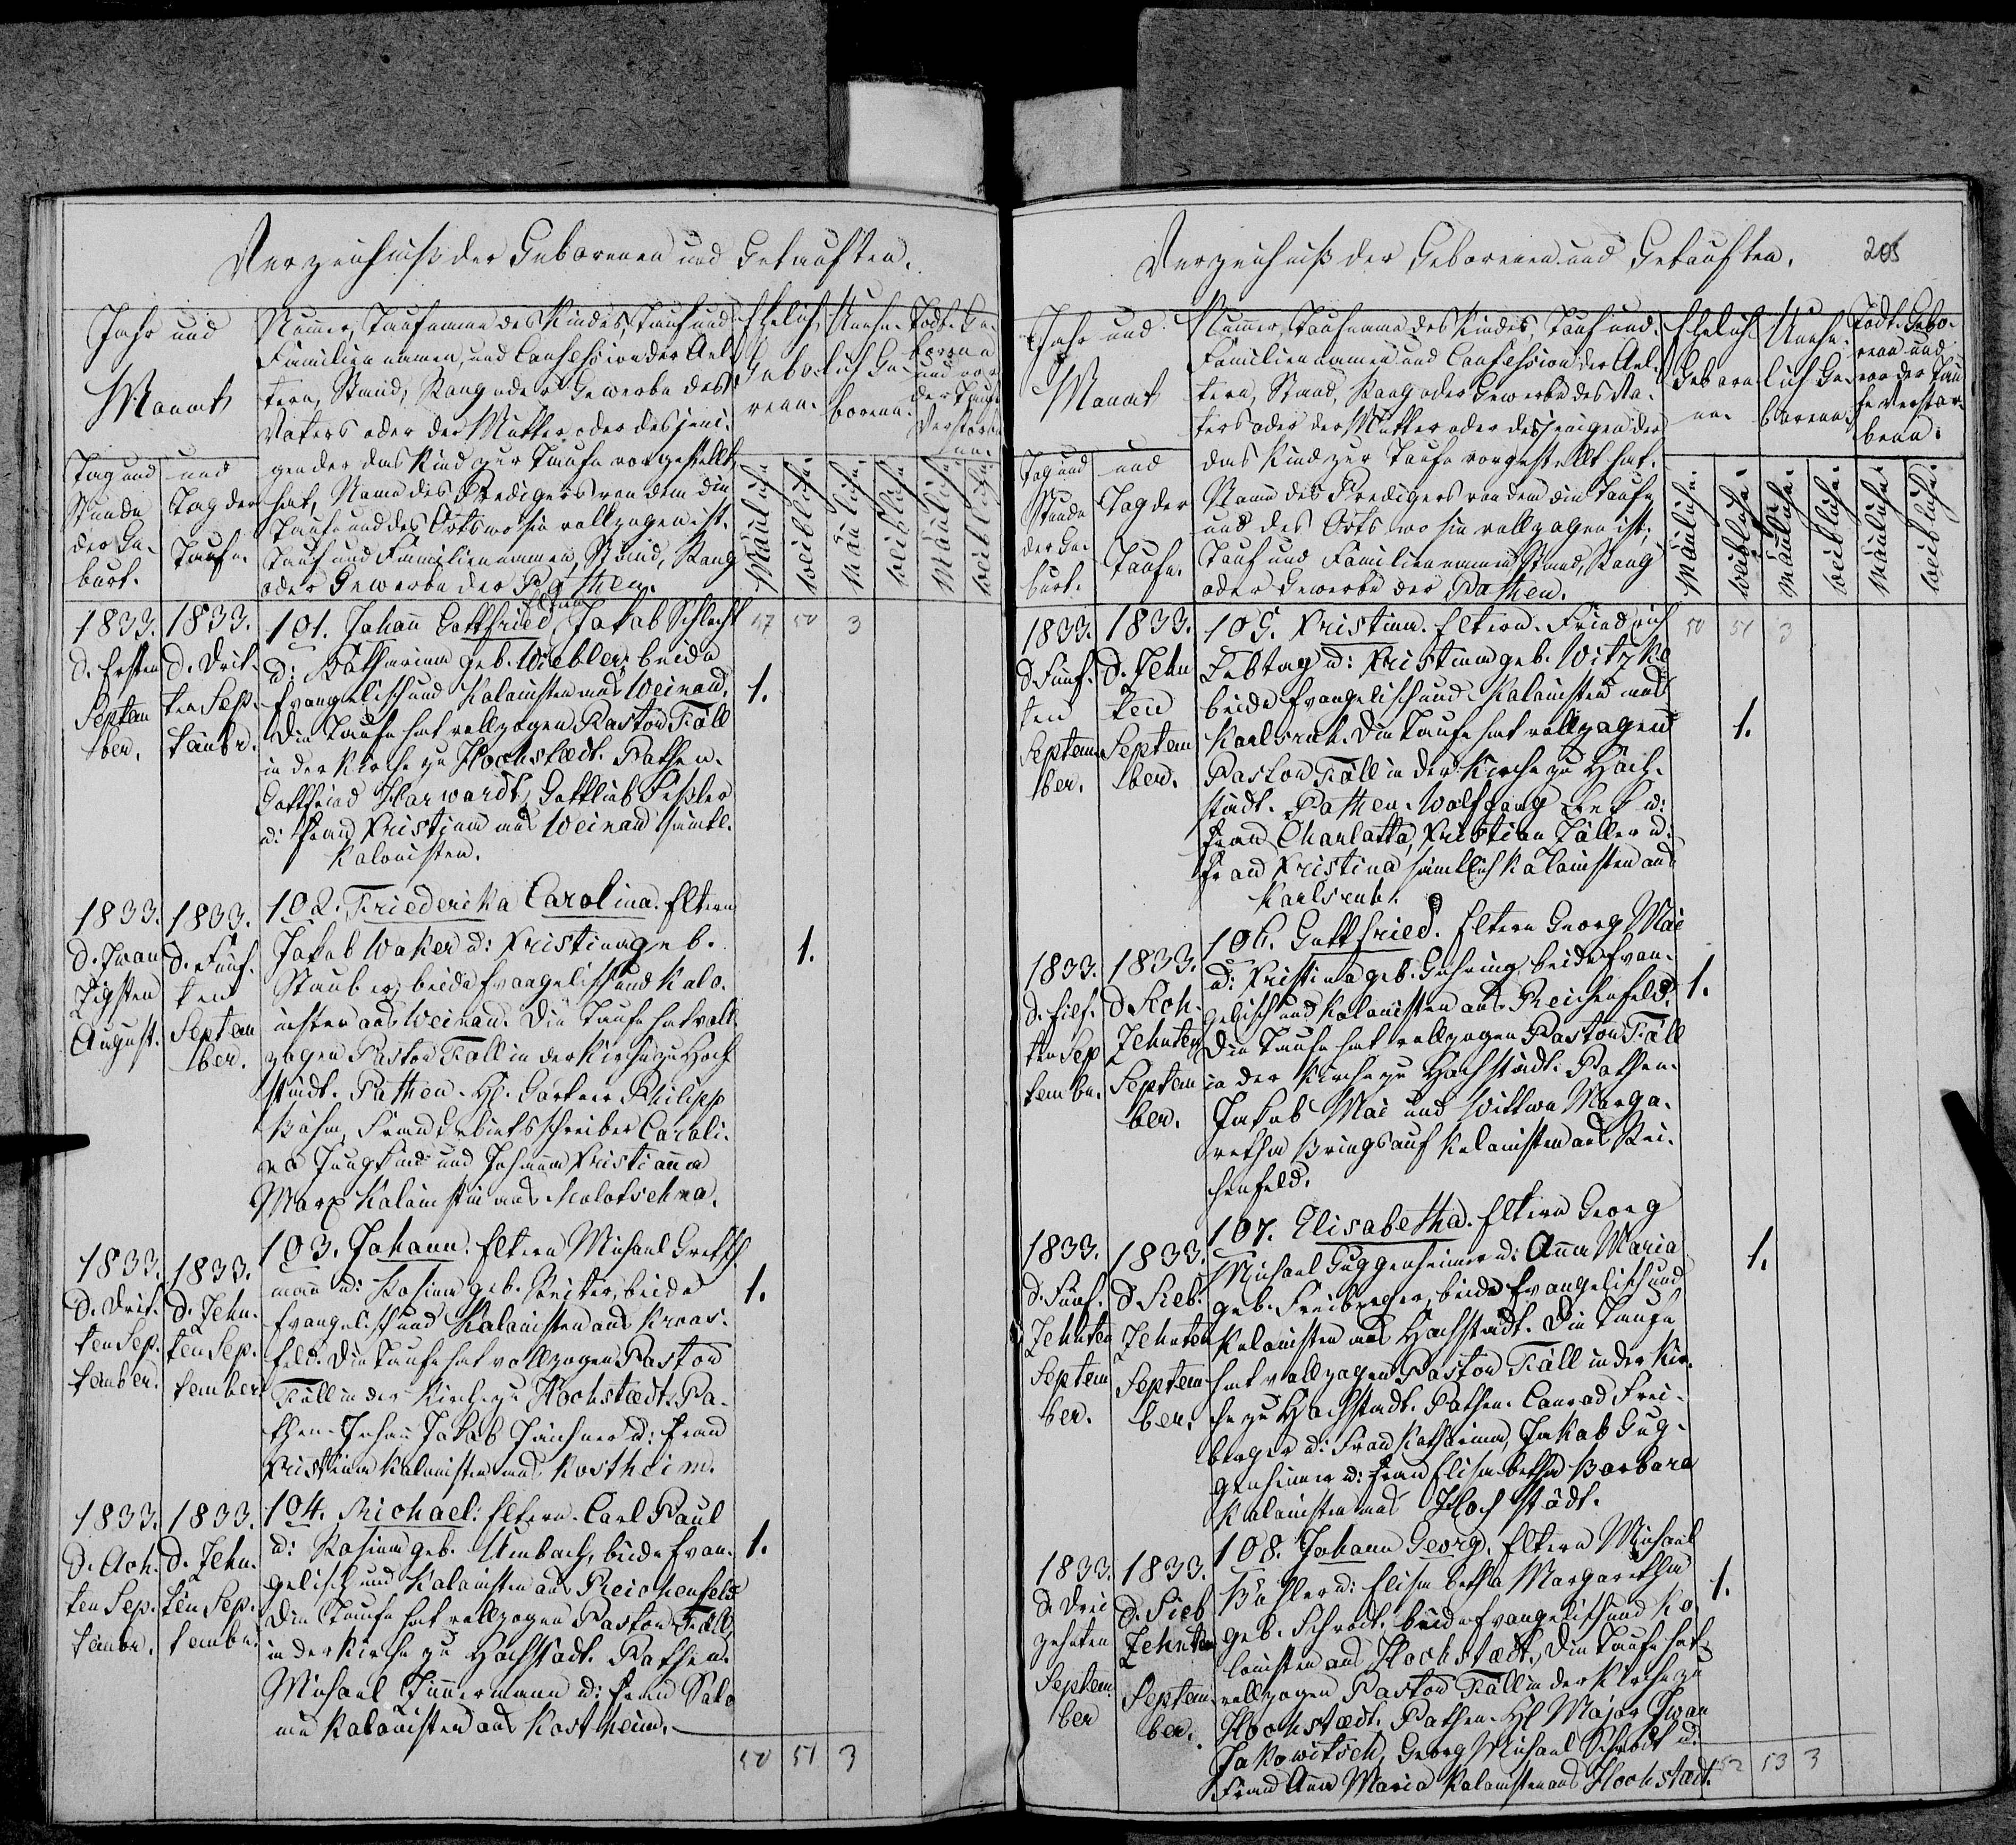 Verzeichniß der Geborenen und Getauften.
Jahr und
Monat
Tag und
Stunde
der Ge-
burt.
und
Tag der
Taufe.
Numer, Taufname des Kindes, Tauf und
Familiennamen, und Confession der Ael-
tern, Stand, Rang oder Gewerbe des
Vaters oder der Mutter oder desjeni-
gen der das Kind zur Taufe vorgestellt
hat, Name des Predigers von dem die
Taufe und des Orts wo sie vollzogen ist.
Tauf und Familiennamen, Stand, Rang
oder Gewerbe der Pathen.
Ehelich
Gebo-
rene.
Unehe-
lich Ge-
borene.
Todt-Ge-
borene
und vor
der Taufe
Verstorbe-
ne.
Mänliche.
Weibliche.
Mänliche.
Weibliche.
Mänliche.
Weibliche.
1833.
d. Ersten
Septem
ber.
1833.
d. Drit-
ten Sep-
tember.
101. Johann Gottfried, Eltern Jakob Schlecht
u: Katharina geb. Wiebler, beide
Evangelisch und Kolonisten aus Weinau.
Die Taufe hat vollzogen Pastor Föll
in der Kirche zu Hochstædt. Pathen.
Gottfried Harwardt, Gottlieb Feßler
u: Frau Kristiana aus Weinau sämtl.
Kolonisten.
47 50 3
1.
1833.
d. Zwan
zigsten
August.
1833.
d. Fünf-
ten
Septem
ber.
102. Friederika Carolina. Eltern
Jakob Waker u: Kristina geb.
Stauber, beide Evangelisch und Kolo-
nisten aus Weinau. Die Taufe hat voll
zogen Pastor Föll in der Kirche zu Hoch
städt. Pathen. H. Gärtner Philipp
Böhm, Frau Gebietsschreiber Caroli-
na Jungkind und Johanna Kristianna
Marx Kolonistin aus Molotschna.
1.
1833.
d. Drit-
ten Sep-
tember.
1833.
d. Zehn-
ten Sep-
tember
103. Johann. Eltern Michael Gretth
mann u: Rosina geb. Reiter, beide
Evangelisch und Kolonisten aus Krons-
feld. Die Taufe hat vollzogen Pastor
Föll in der Kirche zu Hochstædt. Pa-
then. Johann Jakob Jeuchner u: Frau
Kristina Kolonisten aus Kostheim.
1.
1833.
d. Ach-
ten Sep-
tember.
1833.
d. Zehn-
ten Sep-
tember.
104. Michael: Eltern. Carl Paul
u: Rosina geb. Umbach, beide Evan-
gelisch und Kolonisten aus Reichenfeld
Die Taufe hat vollzogen Pastor Föll
in der Kirche zu Hochstädt. Pathen.
Michael Zimmermann u: Frau Salo
me Kolonisten aus Kostheim.
1.
50 51 3
Verzeichniß der Geborenen und Getauften.
205
Jahr und
Monat
Tag und
Stunde
der Ge-
burt.
und
Tag der
Taufe.
Numer, Taufname des Kindes, Tauf und
Familiennamen und Confession der Ael-
tern, Stand, Rang oder Gewerbe des Va-
ters oder der Mutter oder desjenigen der
das Kind zur Taufe vorgestellt hat.
Name des Predigers von dem die Taufe
und des Orts wo sie vollzogen ist;
Tauf und Familiennamen Stand, Rang
oder Gewerbe der Pathen.
Ehelich
Gebore-
ne.
Unehe-
lich Ge-
borene.
Todt-Gebo-
rene und
vor der Tau
fe Verstor-
bene.
Mänliche.
Weibliche.
Mänliche.
Weibliche.
Mänliche.
Weibliche.
1833.
d. Fünf-
ten
Septem
ber.
1833.
d. Zehn
ten
Septem
ber.
105. Kristina. Eltern. Friedrich
Lebtag u: Kristina geb. Witzke
beide Evangelisch und Kolonisten aus
Karlsruh. Die Taufe hat vollzogen
Pastor Föll in der Kirche zu Hoch-
städt. Pathen. Wolfgang Beck u:
Frau Charlotta, Kristian Zöller u:
Frau Kristina sämtlich Kolonisten aus
Karlsruh.
50 51 3
1.
1833.
d. Eilf-
ten Sep
tember.
1833.
d. Sech-
Zehnten
Septem
ber.
106. Gottfried. Eltern Georg Mai
u: Kristina geb. Gehring, beide Evan-
gelisch und Kolonisten aus Reichenfeld.
Die Taufe hat vollzogen Pastor Föll
in der Kirche zu Hochstädt. Pathen.
Jakob Mai und Wittwe Marga-
retha Bringsauf Kolonisten aus Rei-
chenfeld.
1.
1833.
d. Fünf-
Zehnten
Septem
ber.
1833.
d Sieb-
Zehnten
Septem
ber.
107. Elisabetha. Eltern Georg
Michael Guggenheimer u: Anna Maria
geb. Freiberger, beide Evangelisch und
Kolonisten aus Hochstädt. Die Taufe
hat vollzogen Pastor Föll in der Kir-
che zu Hochstädt. Pathen. Conrad Frei-
berger u: Frau Katharina, Jakob Gug-
genheimer u: Frau Elisabetha Barbara
Kolonisten aus Hochstädt.
1.
1833.
d. Drei
zehnten
Septem
ber
1833.
d. Sieb
Zehnten
Septem
ber.
108. Johann Georg. Eltern Michael
Bühler u: Elisabetha Margaretha
geb. Schrodt. beide Evangelisch und Ko-
lonisten aus Hochstædt. Die Taufe hat
vollzogen Pastor Föll in der Kirche zu
Hochstædt. Pathen. H. Major Iwan
Jakowitsch, Georg Michael Schrodt u:
Frau Anna Maria Kolonisten aus Hochstædt.
1.
52 53 3